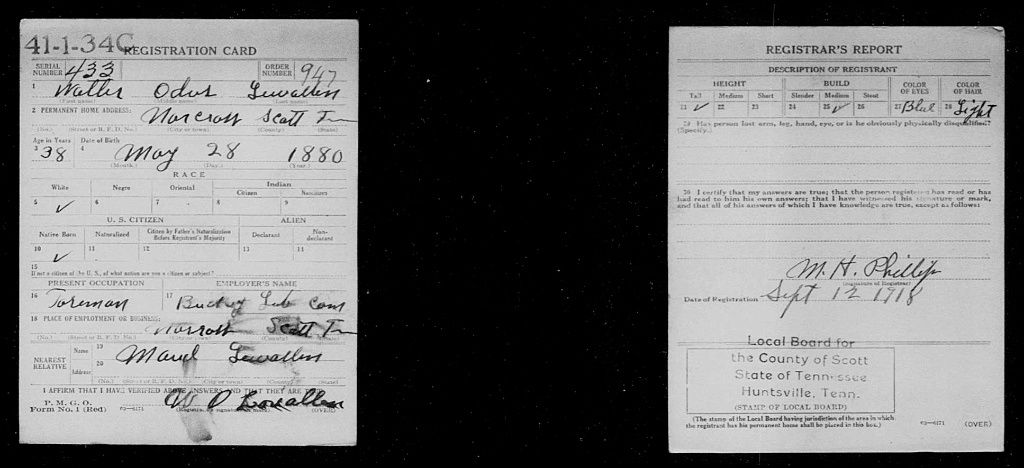 41-1-34C REGISTRATION CARD
SERIAL NUMBER 433 ORDER NUMBER 947
1 Walter Odus Lewallen
(First name) (Middle name) (Last name)
2 PERMANENT HOME ADDRESS: Norcross Scott Tn
(No.) (Street or R. F. D. No.) (City or town) (County) (State)
Age in Years Date of Birth
3 38 4 May 28 1880
(Month.) (Day.) (Year.)
RACE
White Negro Oriental Indian
Citizen Noncitizen
5 ✓ 6 7 8 9
U. S. CITIZEN ALIEN
Native Born Naturalized Citizen by Father's Naturalization Before Registrant's Majority Declarant Non-declarant
10 ✓ 11 12 13 14
15
If not a citizen of the U. S., of what nation are you a citizen or subject?
PRESENT OCCUPATION EMPLOYER'S NAME
16 Foreman 17 Lub Com
18 PLACE OF EMPLOYMENT OR BUSINESS:
Norcross Scott Tn
(No.) (Street or R. F. D. No.) (City or town) (County) (State)
NEAREST RELATIVE Name 19
Address 20 Lewallen
(No.) (Street or R. F. D. No.) (City or town) (County) (State)
I AFFIRM THAT I HAVE VERIFIED ABOVE ANSWERS AND THAT THEY ARE
P. M. G. O.
Form No. 1 (Red) 03-6171 W O Lewallen (OVER)
REGISTRAR'S REPORT
DESCRIPTION OF REGISTRANT
HEIGHT BUILD COLOR OF EYES COLOR OF HAIR
Tall Medium Short Slender Medium Stout
21 ✓ 22 23 24 25 ✓ 26 27 Blue 28 Light
29 Has person lost arm, leg, hand, eye, or is he obviously physically disqualified?
(Specify.)
30 I certify that my answers are true; that the person registered has read or has
had read to him his own answers; that I have witnessed his signature or mark,
and that all of his answers of which I have knowledge are true, except as follows:
M. H. Phillips
(Signature of Registrar)
Date of Registration Sept 12 1918
Local Board for
the County of Scott
State of Tennessee
Huntsville, Tenn.
(STAMP OF LOCAL BOARD)
(The stamp of the Local Board having jurisdiction of the area in which
the registrant has his permanent home shall be placed in this box.)
03-6171 (OVER)